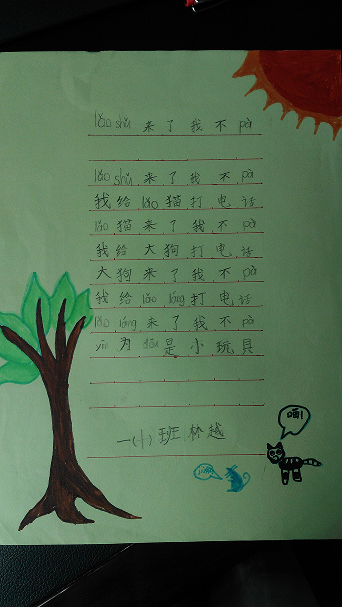 lǎo shǔ 来了我不 pà
lǎo shǔ 来了我不 pà
我给 lǎo 猫打电话
lǎo 猫来了我不 pà
我给大狗打电话
大狗来了我不 pà
我给 lǎo láng 打电话
lǎo láng 来了我不 pà
为 dōu 是小玩具
一(小)班 林越
喵!